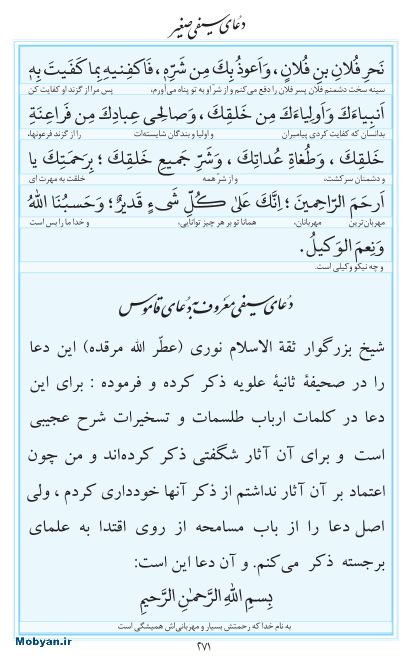 دعای سیفی صغیر
نَحرِ فُلانِ بنِ فُلانٍ ، وَاَعوذُ بِكَ مِن شَرِّهِ ، فَاكفِنيهِ بِما كَفَيتَ بِهِ
سینه سخت دشمنم فلان پسر فلان را دفع می‌کنم و از شر او به تو پناه می‌آورم، پس مرا از گزند او کفایت کن
اَنبِياءَكَ وَاَولِياءَكَ مِن خَلقِكَ ، وَصالِحي عِبادِكَ مِن فَراعِنَةِ
بدانسان که کفایت کردی پیامبران و اولیا و بندگان شایسته‌ات را از گزند فرعونها،
خَلقِكَ ، وَطُغاةِ عُداتِكَ ، وَشَرِّ جَميعِ خَلقِكَ ؛ بِرَحمَتِكَ يا
و دشمنان سرکشت، و از شر همه خلقت به مهرت ای
اَرحَمَ الرّاحِمينَ ؛ اِنَّكَ عَلىٰ كُلِّ شَيءٍ قَديرٌ ؛ وَحَسبُنَا اللهُ
مهربان‌ترین مهربانان، همانا تو بر هر چیز توانایی، و خدا ما را بس است
وَنِعمَ الوَكيلُ .
و چه نیکو وکیلی است.
دعای سیفی معروف به دعای قاموس
شیخ بزرگوار ثقة الاسلام نوری (عطّر الله مرقده) این دعا
را در صحیفهٔ ثانیهٔ علویه ذکر کرده و فرموده : برای این
دعا در کلمات ارباب طلسمات و تسخیرات شرح عجیبی
است و برای آن آثار شگفتی ذکر کرده‌اند و من چون
اعتماد بر آن آثار نداشتم از ذکر آنها خودداری کردم ، ولی
اصل دعا را از باب مسامحه از روی اقتدا به علمای
برجسته ذکر می‌کنم. و آن دعا این است:
بِسمِ اللهِ الرَّحمٰنِ الرَّحيمِ
به نام خدا که رحمتش بسیار و مهربانی‌اش همیشگی است
۲۷۱
Mobyan.ir